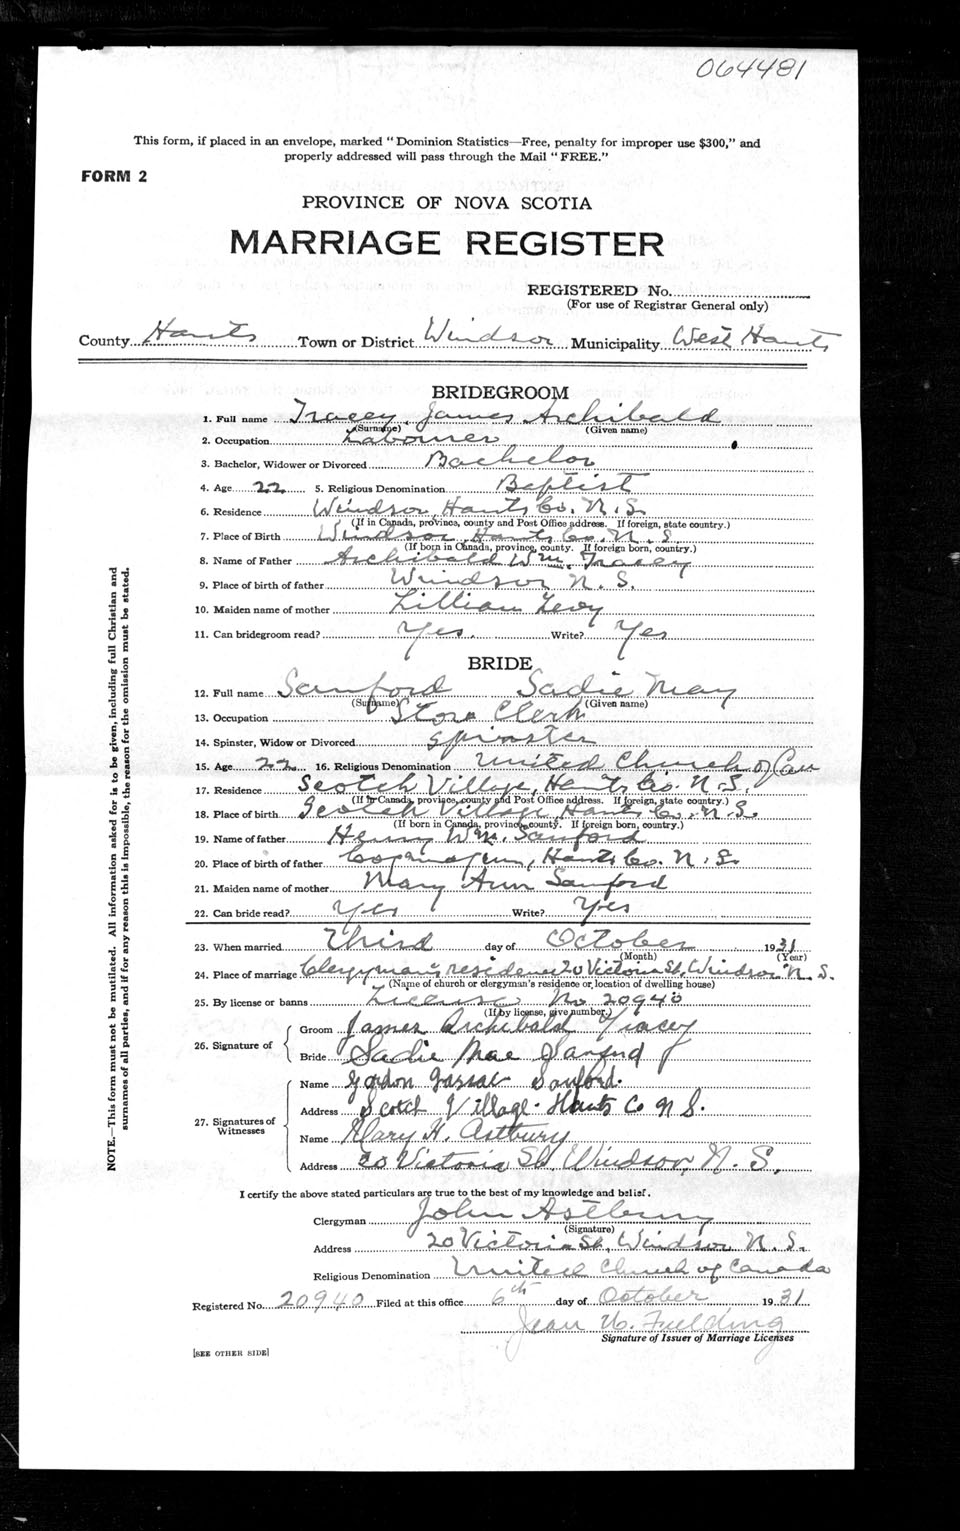 064481
This form, if placed in an envelope, marked "Dominion Statistics—Free, penalty for improper use $300," and
properly addressed will pass through the Mail "FREE."
FORM 2
PROVINCE OF NOVA SCOTIA
MARRIAGE REGISTER
REGISTERED No.
(For use of Registrar General only)
County Hants Town or District Windsor Municipality West Hants
BRIDEGROOM
1. Full name Tracey James Archibald
(Surname) (Given name)
2. Occupation Labourer
3. Bachelor, Widower or Divorced Bachelor
4. Age 22 5. Religious Denomination Baptist
6. Residence Windsor, Hants Co. N.S.
(If in Canada, province, county and Post Office address. If foreign, state country.)
7. Place of Birth Windsor, Hants Co. N.S.
(If born in Canada, province, county. If foreign born, country.)
8. Name of Father Archibald Wm. Tracey
9. Place of birth of father Windsor N.S.
10. Maiden name of mother Lillian Levy
11. Can bridegroom read? Yes. Write? Yes
BRIDE
12. Full name Sanford Sadie May
(Surname) (Given name)
13. Occupation Store Clerk
14. Spinster, Widow or Divorced Spinster
15. Age 22 16. Religious Denomination United Church of Can
17. Residence Scotch Village, Hants Co. N.S.
(If in Canada, province, county and Post Office address. If foreign, state country.)
18. Place of birth Scotch Village, Hants Co. N.S.
(If born in Canada, province, county. If foreign born, country.)
19. Name of father Henry Wm. Sanford
20. Place of birth of father Hants Co. N.S.
21. Maiden name of mother Mary Ann Sanford
22. Can bride read? Yes Write? Yes
23. When married Third day of October 1931
(Month) (Year)
24. Place of marriage Clergyman's residence 20 Victoria St. Windsor N.S.
(Name of church or clergyman's residence or location of dwelling house)
25. By license or banns License No 20940
(If by license, give number.)
26. Signature of
Groom James Archibald Tracey
Bride Sadie Mae Sanford
27. Signatures of Witnesses
Name Gordon Sanford.
Address Scotch Village. Hants Co N.S.
Name Mary H. Astbury
Address 20 Victoria St., Windsor, N.S.
I certify the above stated particulars are true to the best of my knowledge and belief.
Clergyman John Astbury
(Signature)
Address 20 Victoria St., Windsor N.S.
Religious Denomination United Church of Canada
Registered No. 20940 Filed at this office 6th day of October 1931
Jean Fielding
Signature of Issuer of Marriage Licenses
[SEE OTHER SIDE]
NOTE.—This form must not be mutilated. All information asked for is to be given, including full Christian and
surnames of all parties, and if for any reason this is impossible, the reason for the omission must be stated.